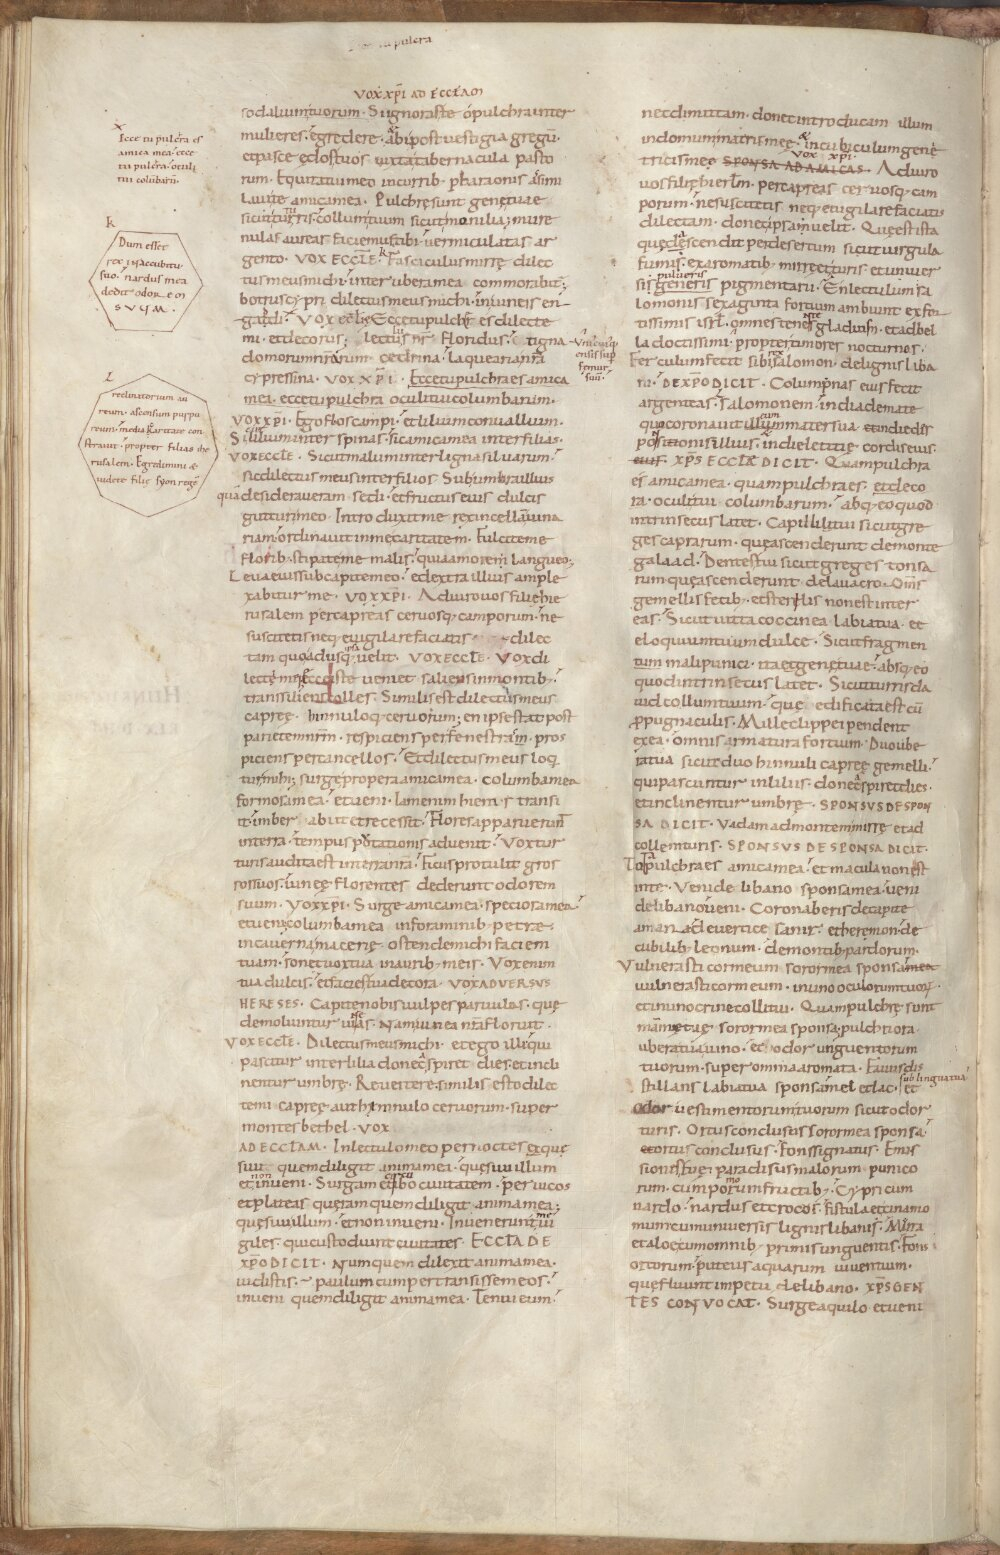 VOX XPI AD ECCLAM
sodalium tuorum. Si ignoras te o pulchra inter
mulieres. egredere. & abi post vestigia gregu.
et pasce edos tuos iuxta tabernacula pasto
rum. Equitatui meo in currib; pharaonis assimi
lavi te amica mea. Pulchre sunt gene tuae
sicut turturis. collum tuum sicut monilia; mure
nulas aureas faciemus tibi vermiculatas ar
gento. VOX ECCLE. Fasciculus mirre dilec
tus meus michi. inter ubera mea commorabit;
botrus cypri dilectus meus michi. in vineis en
gaddi. VOX ecclie Ecce tu pulcher es dilecte
mi. et decorus; lectulus nr floridus. tigna
domorum nrarum cedrina. laquearia nra
cypressina. VOX XPI. Ecce tu pulchra es amica
mea. ecce tu pulchra oculi tui columbarum.
VOX XPI. Ego flos campi. et lilium convallium.
Sicut lilium inter spinas. sic amica mea inter filias.
VOX ECCLE. Sicut malum inter ligna silvarum.
sic dilectus meus inter filios. Sub umbra illius
qua desideraveram sedi. et fructus eius dulcis
gutturi meo. Introduxit me rex in cella vina
riam. ordinavit in me caritatem. Fulcite me
florib. stipate me malis. quia amore langueo;
Leva eius sub capite meo. et dextra illius ample
xabitur me. VOX XPI. Adiuro vos filie hie
rusalem per capreas cervosq; camporum. ne
suscitetis neq; evigilare faciatis dilec
tam quo adusq; ipsa velit. VOX ECCLE. Vox di
lecti mei ecce iste veniet saliens in montib;
transiliens colles. Similis est dilectus meus
capree. hinnuloq; cervorum; en ipse stat post
parietem nrm. respiciens per fenestram. pros
piciens per cancellos. Et dilectus meus loq
tur michi; surge propera amica mea. columba mea
formosa mea. et veni. Iam enim hiems transi
it. imber abiit et recessit. Flores apparuerunt
in terra. tempus putationis advenit. Vox tur
turis audita est in terra nra. Ficus protulit gros
sos suos. vinee florentes dederunt odorem
suum. VOX XPI. Surge amica mea. speciosa mea
et veni columba mea in foraminib petre.
in caverna macerie. ostende michi faciem
tuam. sonet vox tua in aurib; meis. Vox enim
tua dulcis. et facies tua decora. VOX ADVERSVS
HERESES. Capite nobis vulpes parvulas. que
demoliuntur vineas. Nam vinea nra floruit.
VOX ECCLE. Dilectus meus michi et ego illi qui
pascitur inter lilia donec aspiret dies. et incli
nentur umbre. Revertere. similis esto dilec
te mi capree. aut hinnulo cervorum. super
montes bethel. VOX
AD ECCLAM. In lectulo meo per noctes
sivi quem diligit anima mea. quesivi illum
et non inveni. Surgam et circuibo civitatem. per vicos
et plateas queram quem diligit anima mea;
quesivi illum. et non inveni. Invenerunt me vi
giles. qui custodiunt civitates. ECCLA DE
XPO DICIT. Num quem dilexit anima mea.
vidistis. paululum cum pertransissem eos.
inveni quem diligit anima mea. Tenui eum.
nec dimittam. donec introducam illum
in domum matris mee. & in cubiculum gene
tricis mee SPONSA AD AMICAS. VOX XPI. Adiuro
vos filie hierlm. per capreas cervosq; cam
porum. ne suscitetis neq; evigilare faciatis
dilectam. donec ipsa velit. Que est ista
que ascendit per desertum sicut virgula
fumi. ex aromatib; mirre et turis. et univer
sis generis pulveris pigmentarii. En lectulum sa
lomonis sexaginta fortium ambiunt ex for
tissimis isrl. omnes tenentes gladium. et ad bel
la doctissimi. propter timores nocturnos.
Ferculum fecit sibi rex salomon. de lignis liba
ni. DE XPO DICIT. Columpnas eius fecit
argenteas. salomonem in diademate
quo coronavit illum mater sua et in die des
ponsionis illius. in die letitie cordis eius.
eius. XPS ECCLAE DICIT. Quam pulchra
es amica mea. quam pulchra es. et deco
ra. oculi tui columbarum. absq; eo quod
intrinsecus latet. Capilli tui sicut gre
ges caprarum. que ascenderunt de monte
galaad. Dentes tui sicut greges tonsa
rum que ascenderunt de lavacro. Oms
gemellis fetib; et sterilis non est inter
eas. Sicut vitta coccinea labia tua. et
eloquium tuum dulce. Sicut fragmen
tum mali punici. ita et gene tuae. absq; eo
quod intrinsecus latet. Sicut turris da
vid collum tuum. que edificata est cu
propugnaculis. Mille clippei pendent
ex ea. omnis armatura fortium. Duo ube
ra tua sicut duo hinnuli capree gemelli.
qui pascuntur in liliis. donec aspiret dies.
et inclinentur umbre. SPONSVS DE SPON
SA DICIT. Vadam ad montem mirre et ad
collem turis. SPONSVS DE SPONSA DICIT.
Tota pulchra es amica mea. et macula non est
in te. Veni de libano sponsa mea. veni
de libano veni. Coronaberis de capite
amana de vertice sanir. et hermon. de
cubilib; leonum. de montib; pardorum.
Vulnerasti cor meum soror mea sponsa mea
vulnerasti cor meum. in uno oculorum tuor.
et in uno crine colli tui. Quam pulchre sunt
mamme tue soror mea sponsa. pulchriora
ubera tua vino. et odor unguentorum
tuorum. super omnia aromata. Favus dis
stillans labia tua sponsa mel et lac. sub lingua tua et
odor vestimentorum tuorum sicut odor
turis. Ortus conclusus soror mea sponsa.
ortus conclusus. Fons signatus. Emis
siones tue. paradisus malorum punico
rum. cum pomorum fructib;. Cypri cum
nardo. nardus et crocos. fistula et cinamo
mum cum universis lignis libani. Mirra
et aloe cum omnib; primis unguentis. Fons
ortorum. puteus aquarum viventium.
que fluunt impetu de libano. XPS GEN
TES CONVOCAT. Surge aquilo. et veni
Ecce tu pulcra es
amica mea. ecce
tu pulcra. oculi
tui columbaru.
k
Dum esset
rex i accubitu
suo. nardus mea
dedit odorem
SVVM.
L
reclinatorium au
reum. ascensum purpu
reum. media karitate con
stravit. propter filias ihe
rusalem. Egredimini &
videte filie syon rege
Vniuscuiusq;
ensis sup
femur
suu.